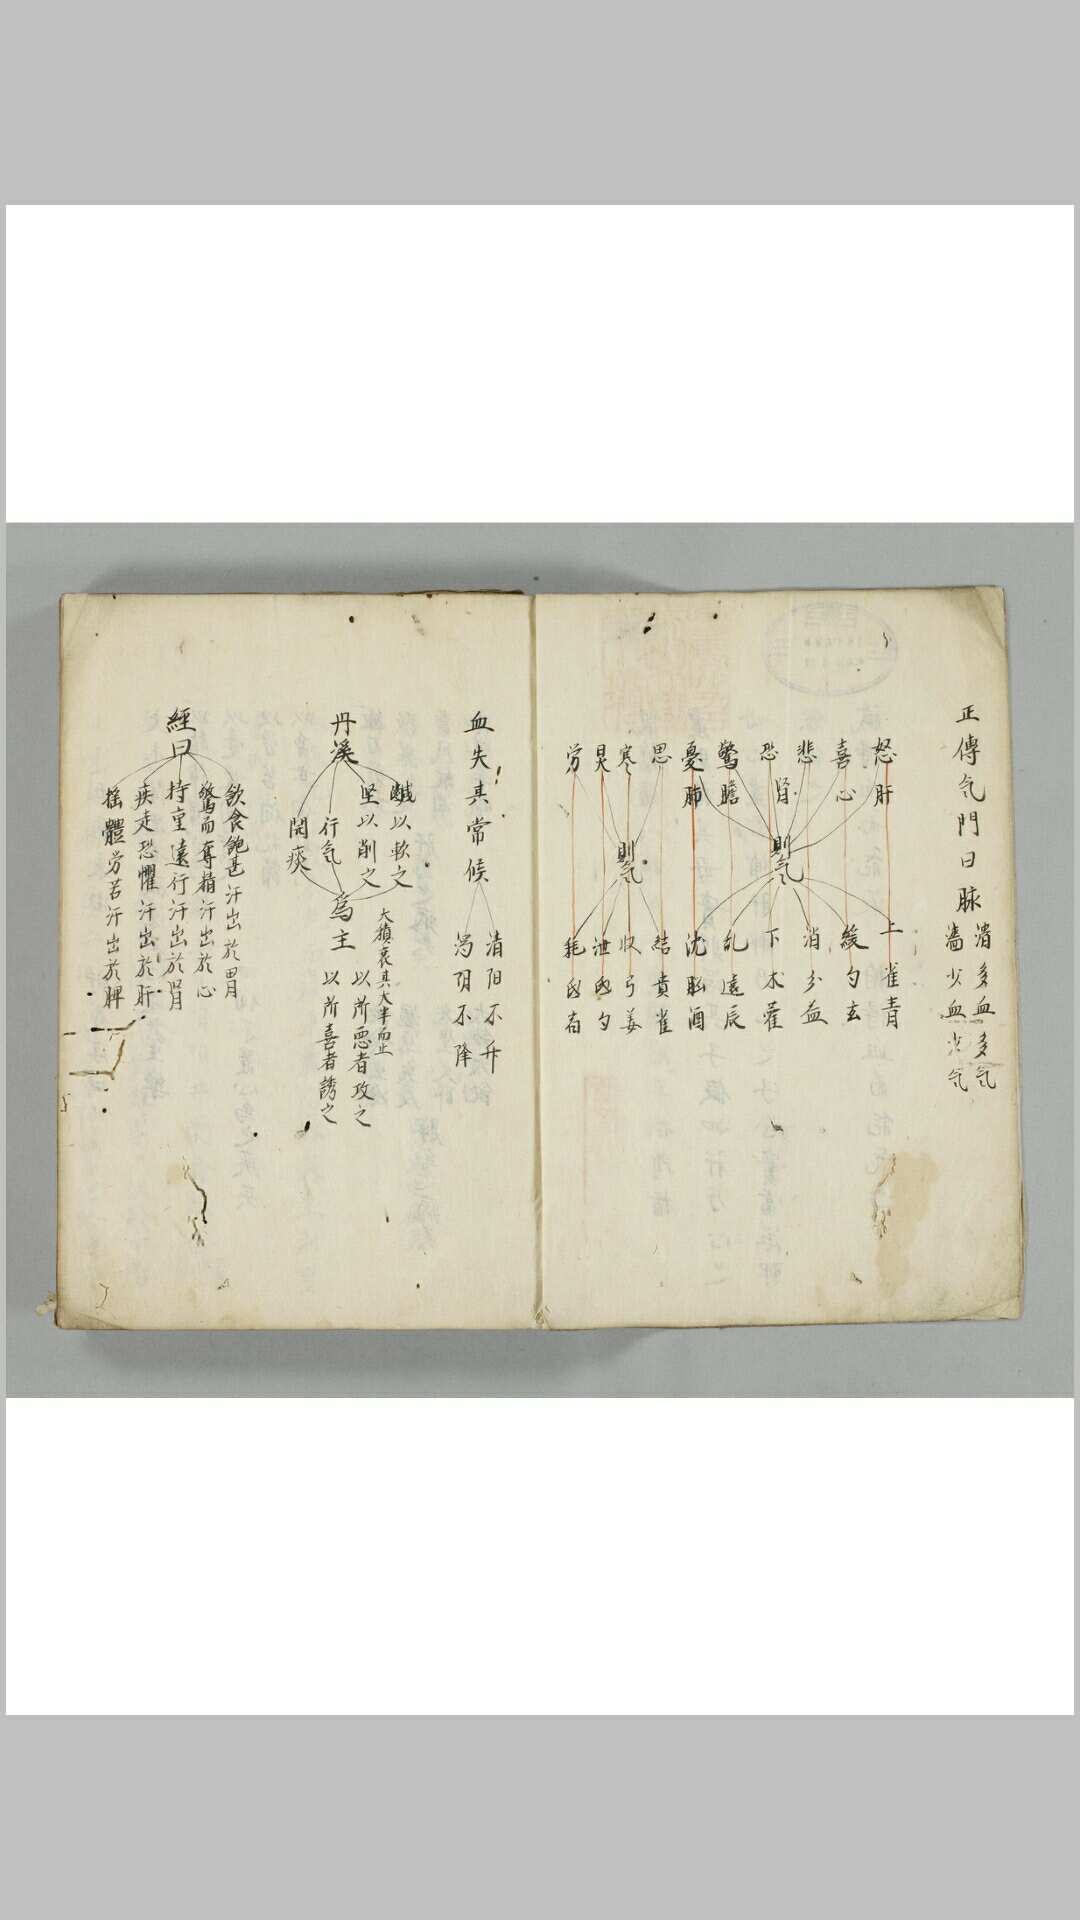 正傳气門曰脉
濇多血多气
濇少血少气
怒肝
喜心
悲
恐腎
驚膽
憂肺
思
寒
炅
労
則气
則气
上雀青
緩勺玄
消分益
下木藿
乱遠辰
沈
結貴雀
収弓姜
泄
耗
血失其常候
清阳不升
濁阴不降
丹溪
鹹以軟之
坚以削之
行气
開痰
為主
大積衰其大半而止
以所惡者攻之
以所喜者誘之
經曰
飲食飽甚汗出於胃
驚而奪精汗出於心
持重遠行汗出於腎
疾走恐懼汗出於肝
搖體労苦汗出於脾